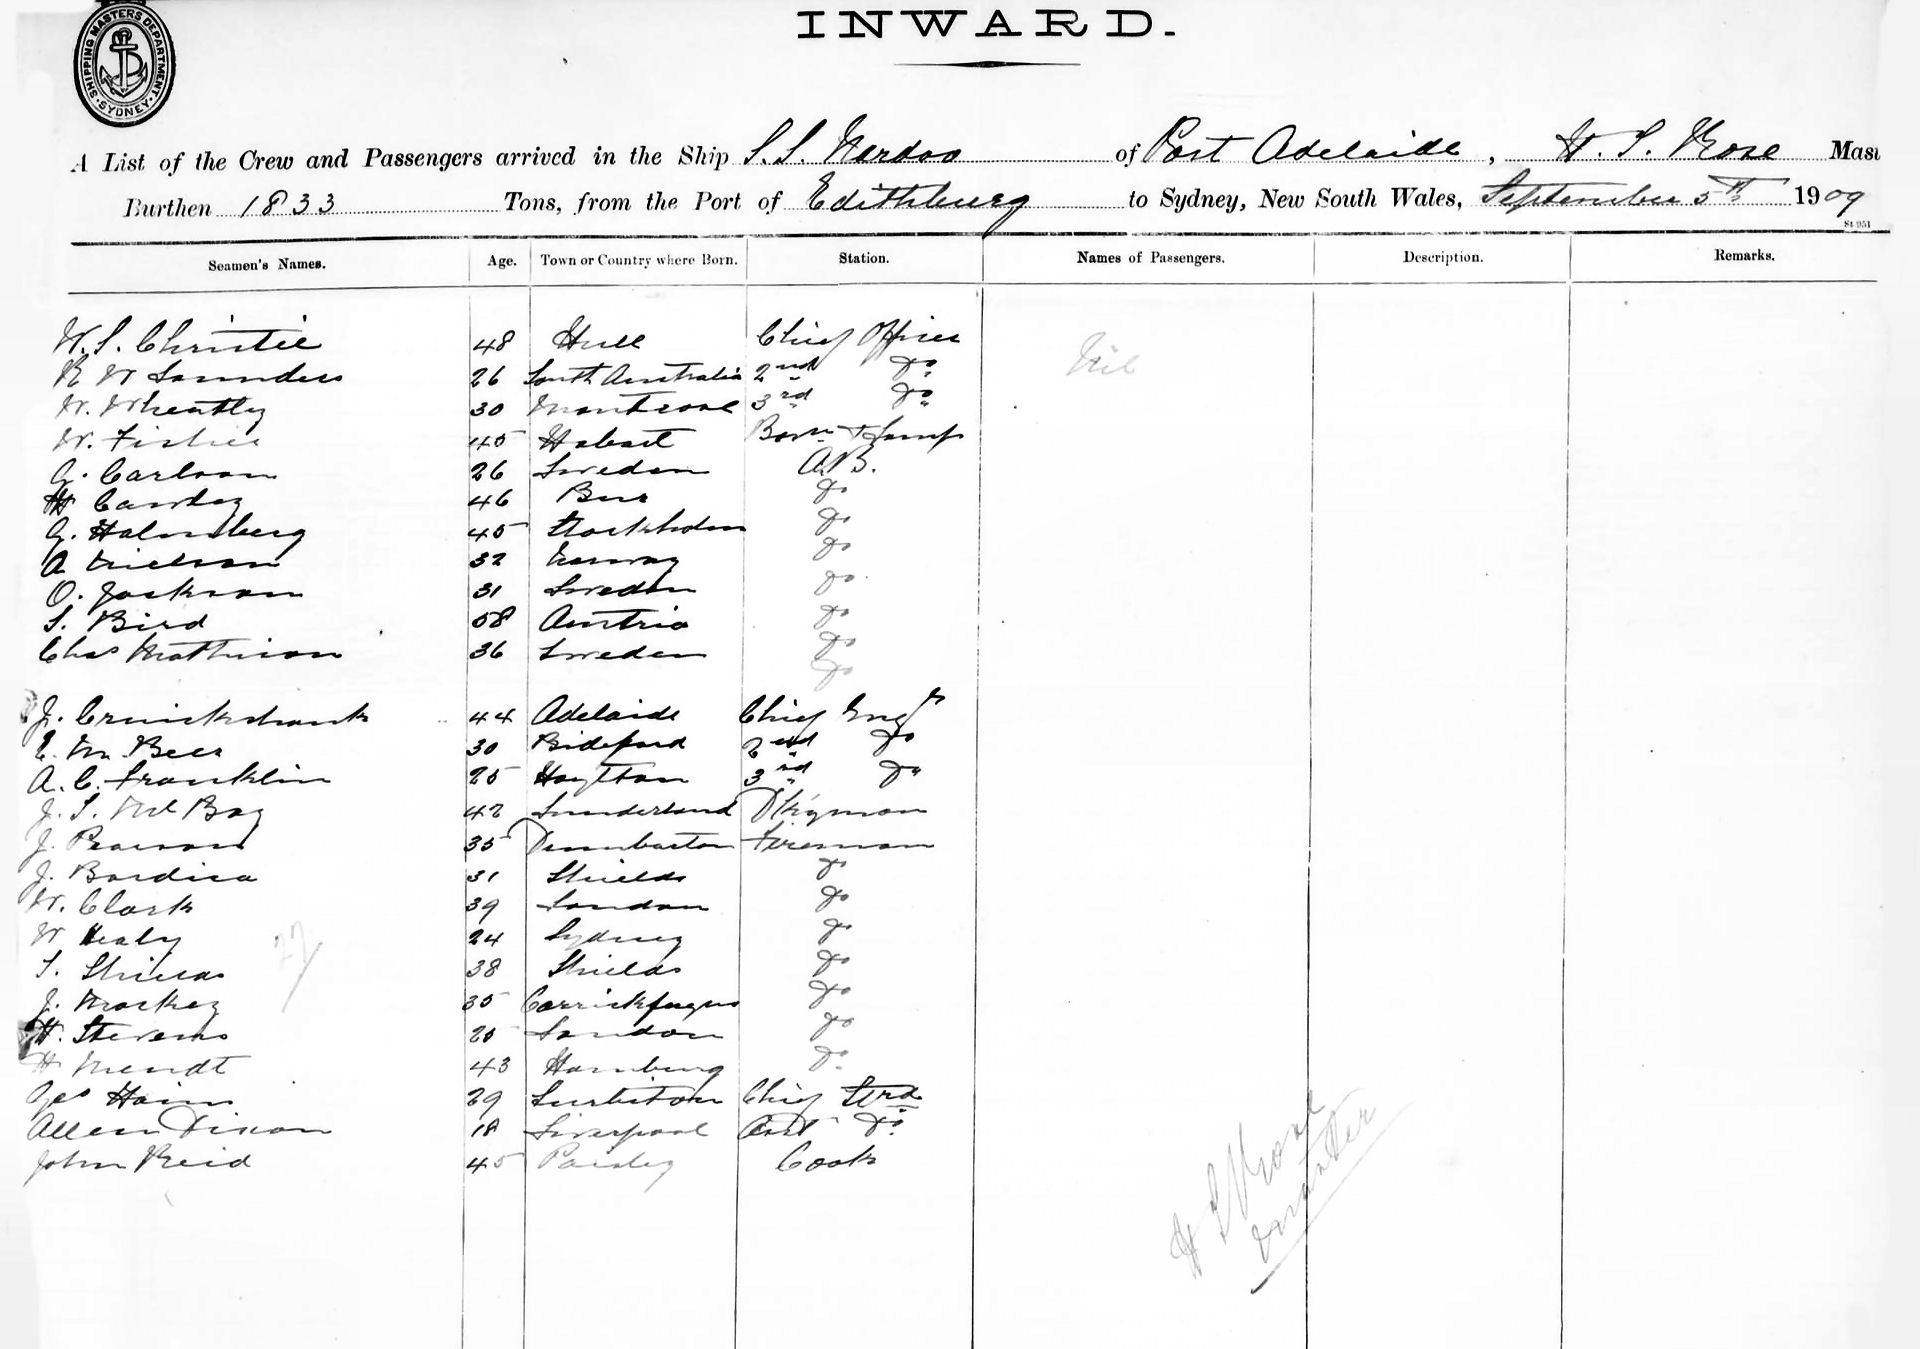 INWARD.
SHIPPING MASTERS DEPARTMENT SYDNEY
A List of the Crew and Passengers arrived in the Ship S.S. Nardoo of Port Adelaide, H. S. Rose Mast
Burthen 1833 Tons, from the Port of Edithburg to Sydney, New South Wales, September 5th 1909
St 951
Seamen's Names. Age. Town or Country where Born. Station. Names of Passengers. Description. Remarks.
W. S. Christie 48 Hull Chief Officer Nil
R W Saunders 26 South Australia 2nd Do
W. Wheatley 30 Montrose 3rd Do
W. Fisher 45 Hobart Bosn & Lamps
G. Carlson 26 Sweden A.B.
H 46 Do
G. Holmberg 45 Stockholm Do
A Erickson 32 Norway Do
O. Jackson 31 Sweden Do
S. Bird 58 Austria Do
Chas Mathison 36 Sweden Do
Do
J. Cruickshank 44 Adelaide Chief Engr
E. M. Beer 30 Bideford 2nd Do
A. C. Franklin 25 Hoylton 3rd Do
J. S. 42 Sunderland Dkyman
J. Pearson 35 Dumbarton Fireman
J. 31 Shields Do
W. Clark 39 London Do
W Healy 24 Sydney Do
27
T. Shields 38 Shields Do
J. Mackey 35 Carrickfergus Do
H. Stevens 25 London Do
H Wendt 43 Hamburg Do
Geo Hains 29 Surbiton Chief Strd
Allen Dixon 18 Liverpool Asst Do
John Reid 45 Paisley Cook
H S Rose
Master